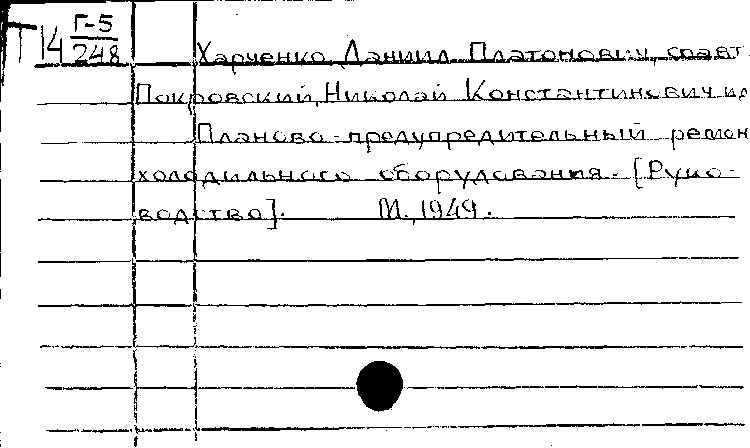 Г-5
П14 248
Харченко, Даниил Платонович, соавт.
Покровский, Николай Константинович и д
Планово-предупредительный ремон
холодильного оборудования. [Руко-
водство]. М., 1949.